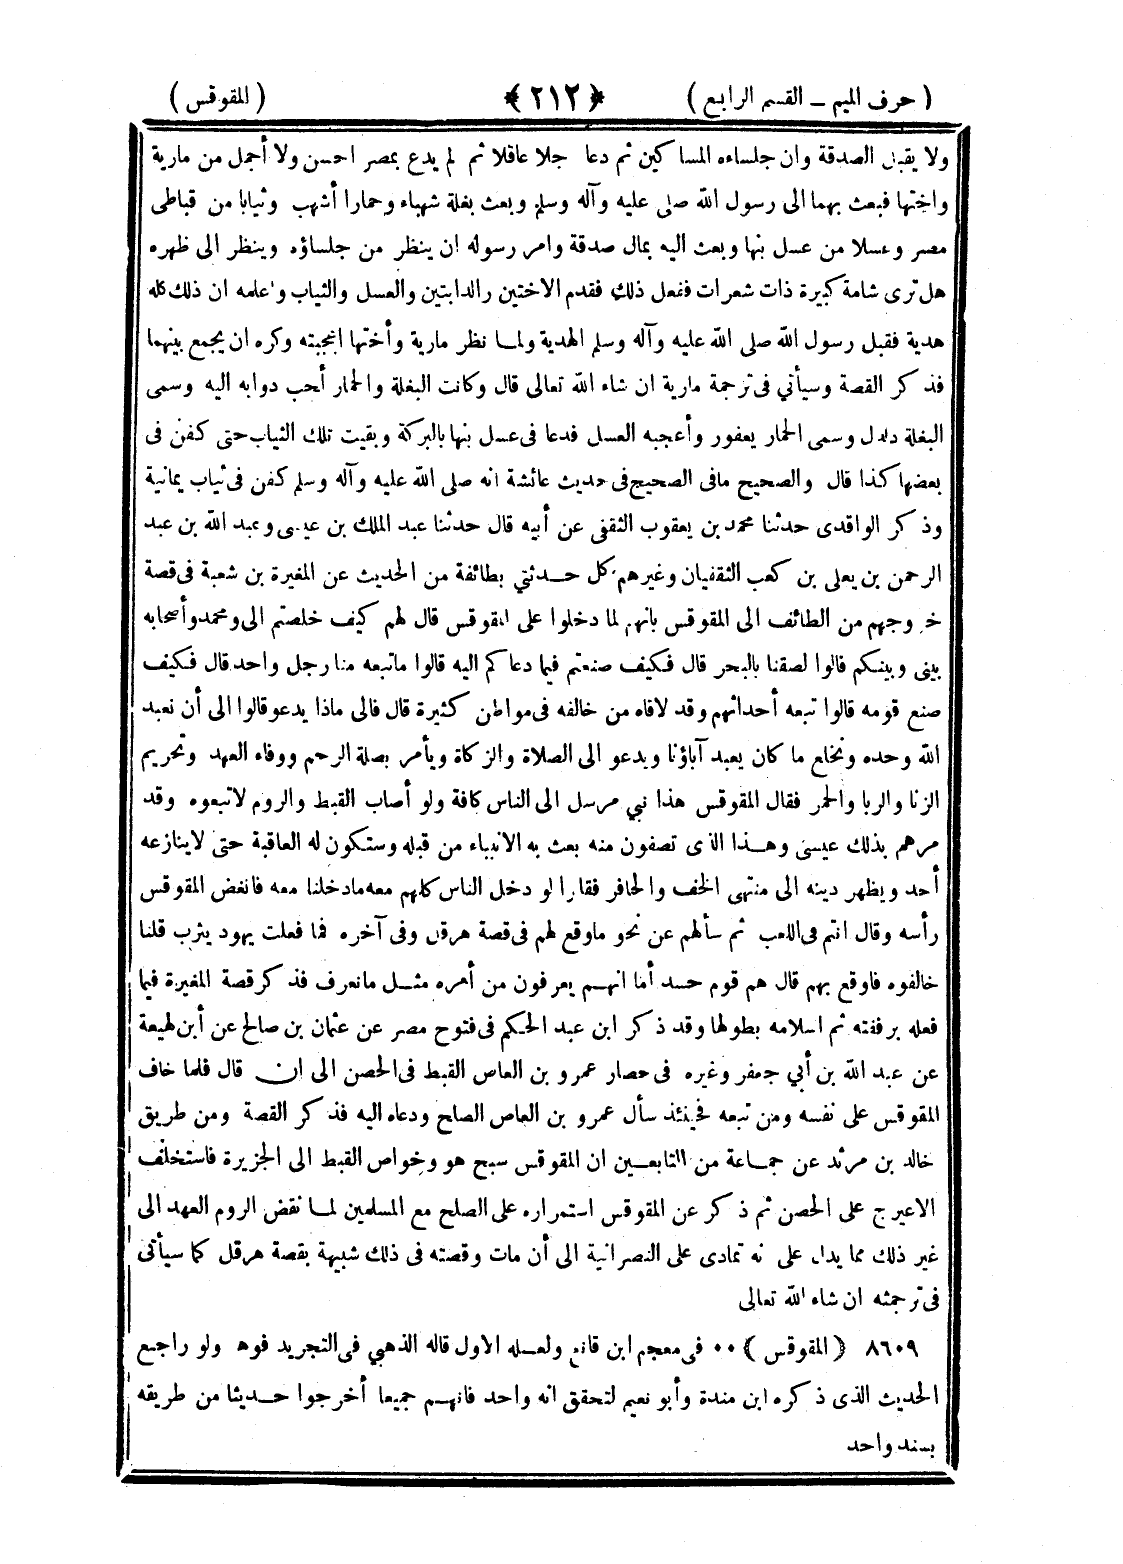 ( حرف الميم ــ القسم الرابع ) ﴿ ٢١٢ ﴾ ( المقوقس )
ولا يقبل الصدقة وان جلساءه المساكين ثم دعا جلا عاقلا ثم لم يدع بمصر احسن ولا أجمل من مارية
واختها فبعث بهما الى رسول الله صلى عليه وآله وسلم وبعث بغلة شهباء وحمارا أشهب وثيابا من قباطى
مصر وعسلا من عسل بنها وبعث اليه بمال صدقة وامر رسوله ان ينظر من جلساؤه وينظر الى ظهره
هل ترى شامة كبيرة ذات شعرات ففعل ذلك فقدم الاختين والدابتين والعسل والثياب واعلمه ان ذلك كله
هدية فقبل رسول الله صلى الله عليه وآله وسلم الهدية ولمـا نظر مارية وأختها اعجبته وكره ان يجمع بينهما
فذكر القصة وسيأتي فى ترجمة مارية ان شاء الله تعالى قال وكانت البغلة والحمار أحب دوابه اليه وسمى
البغلة دلدل وسمى الحمار يعفور وأعجبه العسل فدعا فى عسل بنها بالبركة وبقيت تلك الثياب حتى كفن فى
بعضها كذا قال والصحيح مافى الصحيح فى حديث عائشة انه صلى الله عليه وآله وسلم كفن فى ثياب يمانية
وذكر الواقدى حدثنا محمد بن يعقوب الثقفى عن أبيه قال حدثنا عبد الملك بن عيسى وعبد الله بن عبد
الرحمن بن يعلى بن كعب الثقفيان وغيرهم كل حـدثني بطائفة من الحديث عن المغيرة بن شعبة فى قصة
خروجهم من الطائف الى المقوقس بانهم لما دخلوا على المقوقس قال لهم كيف خلصتم الى ومحمد وأصحابه
بينى وبينكم قالوا لصقنا بالبحر قال فكيف صنعتم فيما دعاكم اليه قالوا ماتبعه منا رجل واحد قال فكيف
صنع قومه قالوا تبعه أحداثهم وقد لاقاه من خالفه فى مواطن كثيرة قال فالى ماذا يدعو قالوا الى أن نعبد
الله وحده ونخلع ما كان يعبد آباؤنا ويدعو الى الصلاة والزكاة ويأمر بصلة الرحم ووفاء العهد وتحريم
الزنا والربا والخمر فقال المقوقس هذا نبي مرسل الى الناس كافة ولو أصاب القبط والروم لاتبعوه وقد
مرهم بذلك عيسى وهـذا الذى تصفون منه بعث به الانبياء من قبله وستكون له العاقبة حتى لاينازعه
أحد ويظهر دينه الى منتهى الخف والحافر فقالوا لو دخل الناس كلهم معه مادخلنا معه فانغض المقوقس
رأسه وقال انتم فى اللعب ثم سألهم عن نحو ماوقع لهم فى قصة هرقل وفى آخره فما فعلت يهود يثرب قلنا
خالفوه فاوقع بهم قال هم قوم حسد أما انهـم يعرفون من أمره مثـل مانعرف فذكر قصة المغيرة فيما
فعله برفقته ثم اسلامه بطولها وقد ذكر ابن عبد الحكم فى فتوح مصر عن عثمان بن صالح عن أبن لهيعة
عن عبد الله بن أبي جعفر وغيره فى حصار عمرو بن العاص القبط فى الحصن الى ان قال فلما خاف
المقوقس على نفسه ومن تبعه فحينئذ سأل عمرو بن العاص الصلح ودعاه اليه فذكر القصة ومن طريق
خالد بن مرثد عن جمـاعة من التابعـين ان المقوقس سبح هو وخواص القبط الى الجزيرة فاستخلف
الاعيرج على الحصن ثم ذكر عن المقوقس استمراره على الصلح مع المسلمين لمـا نقض الروم العهد الى
غير ذلك مما يدل على نه تمادى على النصرانية الى أن مات وقصته فى ذلك شبيهة بقصة هرقل كما سيأتى
فى ترجمته ان شاء الله تعالى
٨٦٠٩ ﴿ المقوقس ﴾ ٠٠ فى معجم ابن قانع ولعـله الاول قاله الذهبي فى التجريد قوه ولو راجع
الحديث الذى ذكره ابن مندة وأبو نعيم لتحقق انه واحد فانهـم جميعا أخرجوا حـديثا من طريقه
بسند واحد